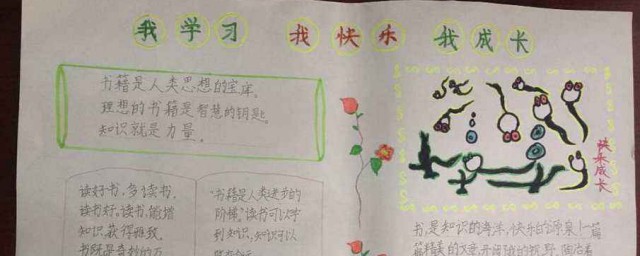 我学习 我快乐 我成长
书籍是人类思想的宝库。
理想的书籍是智慧的钥匙。
知识就是力量。
读好书,多读书,
读书好,读书,能增
知识,获得雅致,
书既是奇妙的万
"书籍是人类进步的
阶梯。"读书可以学
到知识,知识可以
快乐成长
书,是知识的海洋,快乐的源泉!一篇
篇精美的文章,开阔我的视野,陶冶着